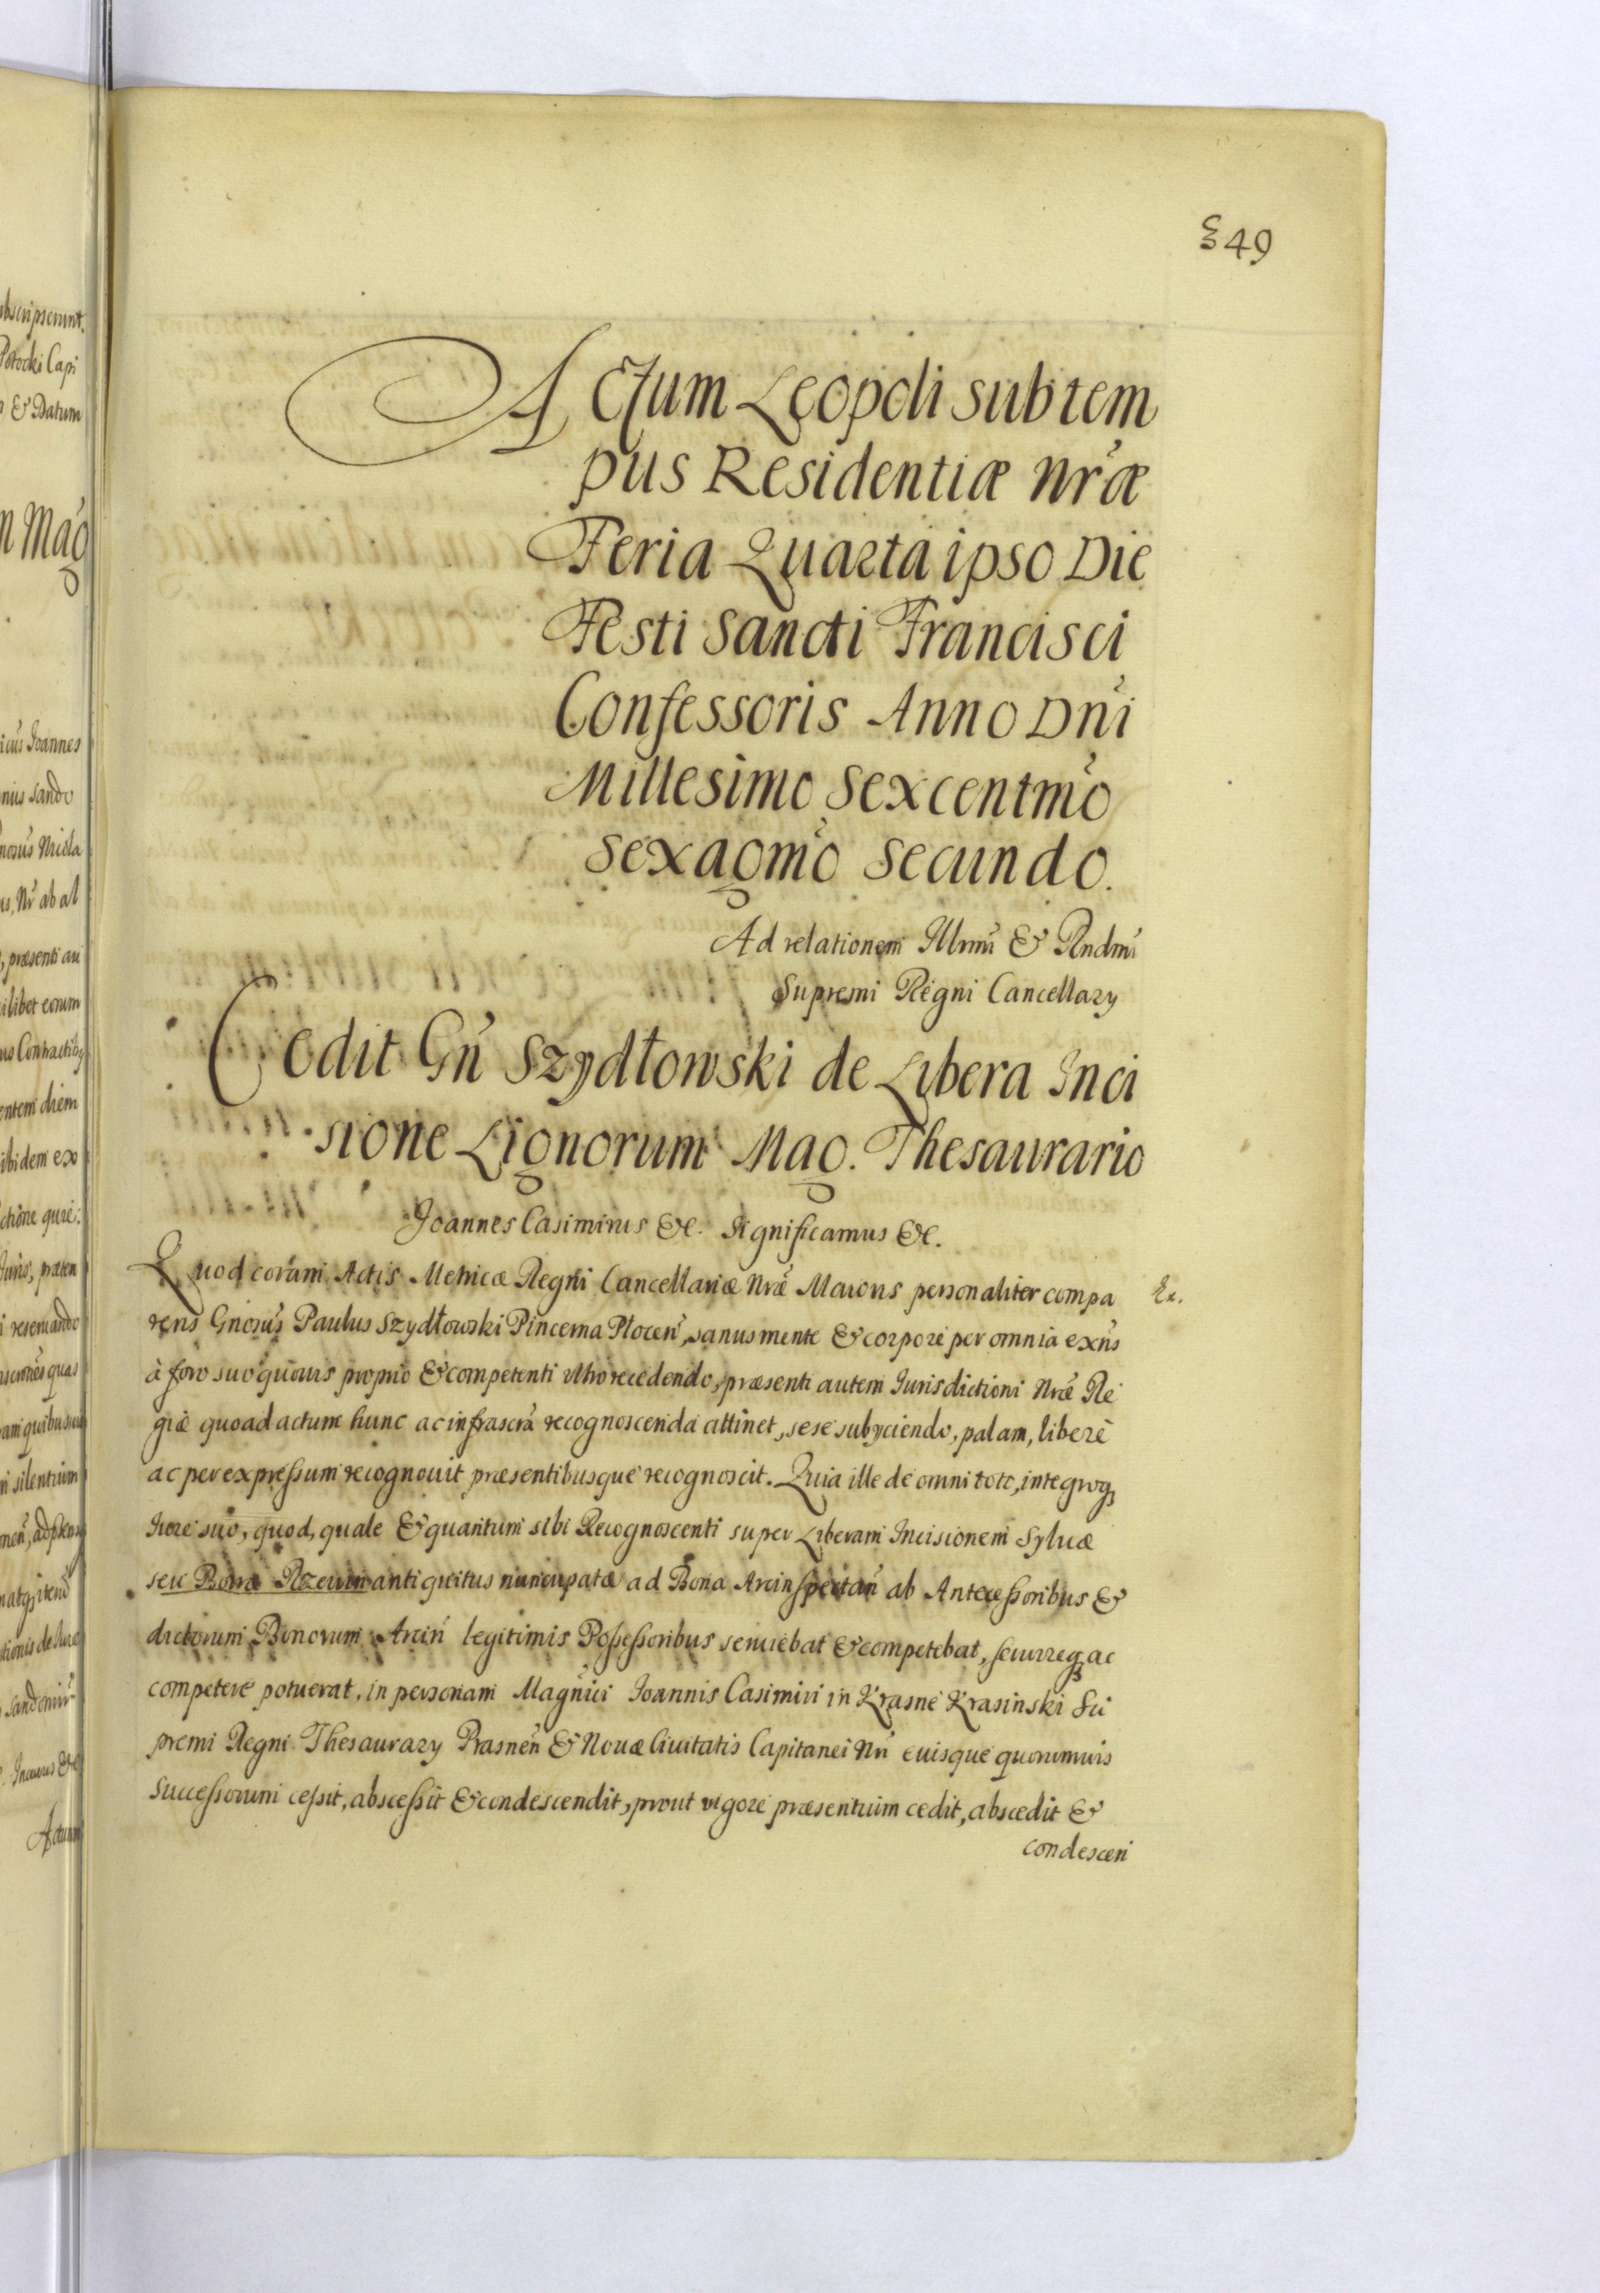 349
Actum Leopoli sub tem
pus Residentiæ Nræ
Feria Quarta ipso Die
Festi Sancti Francisci
Confessoris Anno Dni
Millesimo Sexcentmo
Sexagmo Secundo.
Ad relationem Illmi & Rndmi
Supremi Regni Cancellary
Cedit Gn Szydłowski de Libera Inci
sione Lignorum Mag. Thesaurario
Joannes Casimirus &c. Significamus &c.
Quod coram Actis Metricæ Regni Cancellariæ Nræ Maioris personaliter compa
rens Gnosus Paulus Szydłowski Pincerna Plocen, sanus mente & corpore per omnia exns
à foro suo quouis proprio & competenti vltro recedendo, præsenti autem Iurisdictioni Nræ Re
giæ quoad actum hunc ac infrascra recognoscenda attinet, sese subyciendo, palam, libere
ac per expressum recognouit præsentibusque recognoscit. Quia ille de omni toto, integroq
Iure suo, quod, quale & quantum sibi Recognoscenti super Liberam Incisionem Syluæ
seu antiquitus nuncupatæ ad Bona Arcin spectan ab Antecessoribus &
dictorum Bonorum Arcin legitimis Possessoribus seruiebat & competebat, seruireq ac
competere potuerat, in personam Magnici Joannis Casimiri in Krasne Krasinski Su
premi Regni Thesaurary Prasnen & Nouæ Ciuitatis Capitanei Nri euisque quorumuis
Successorum cessit, abscessit & condescendit, prout vigore præsentium cedit, abscedit &
condescen